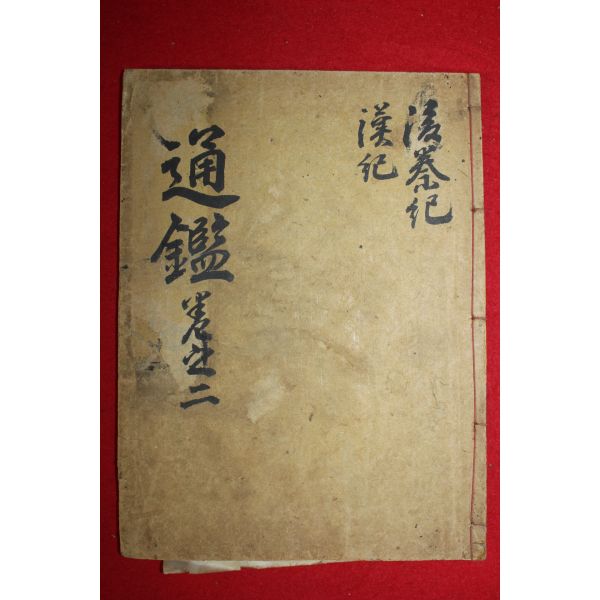 後秦紀
漢紀
通鑑
卷之二